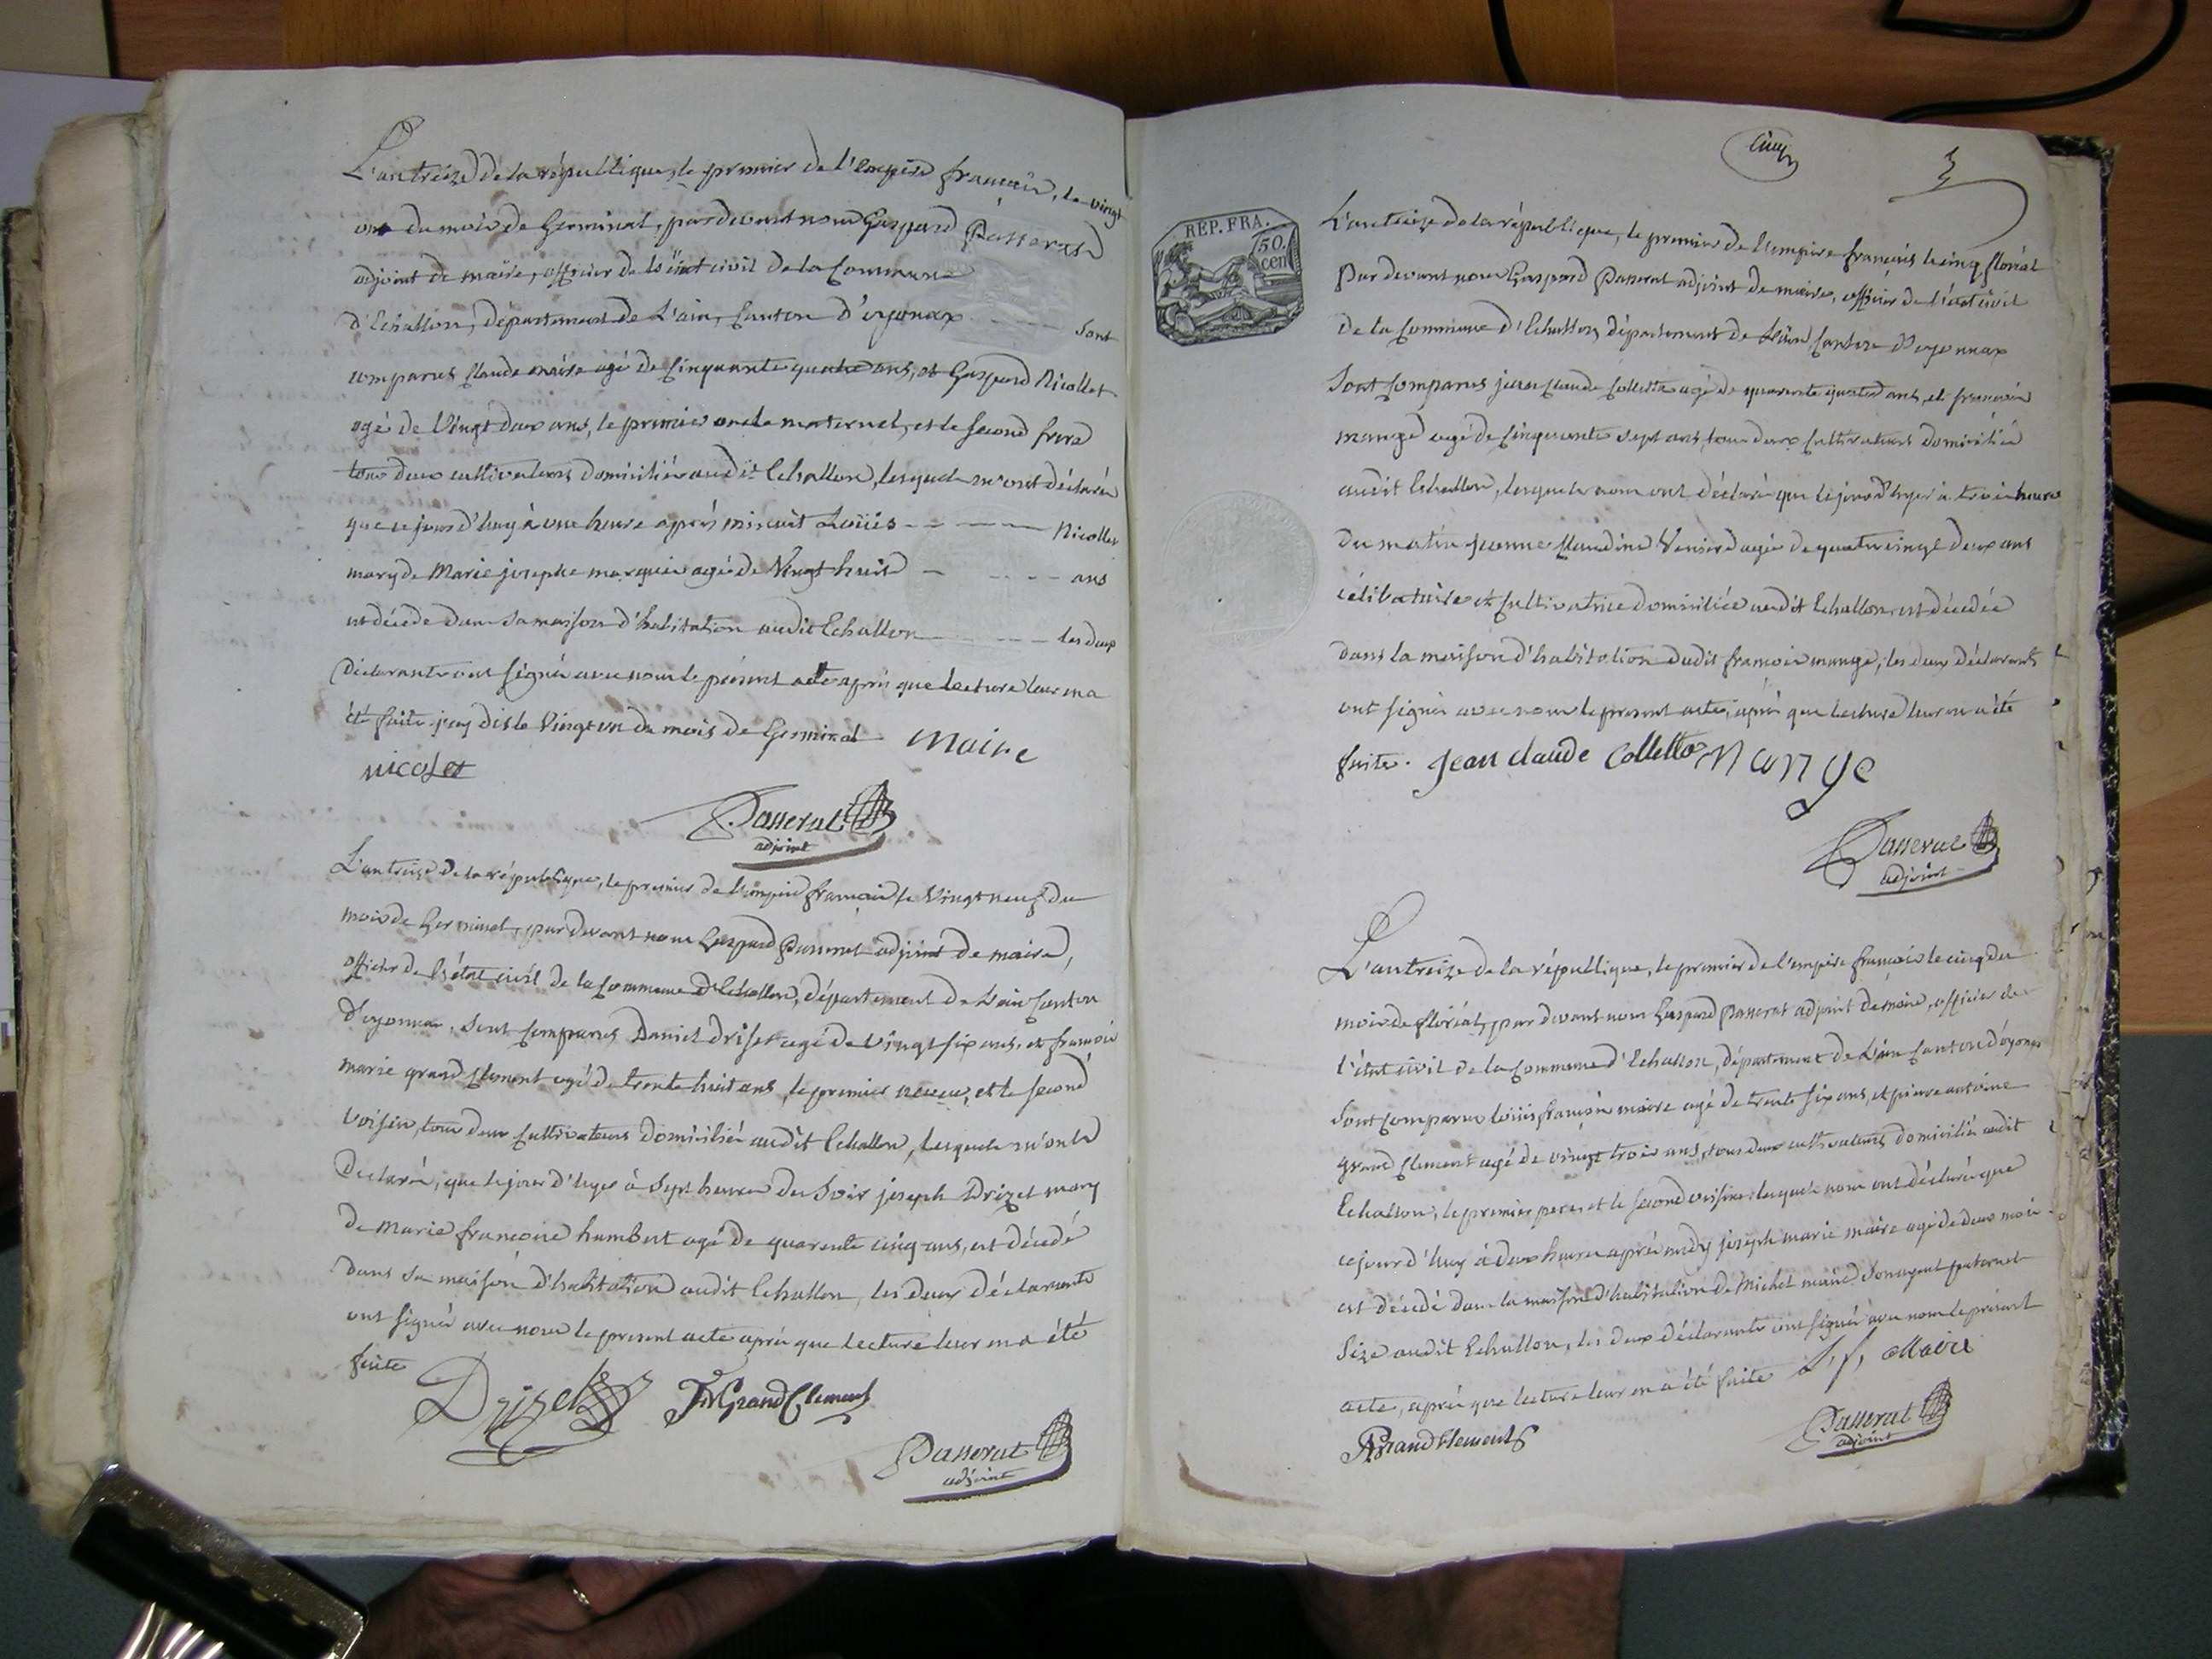 L'an treize de la république, le premier de l'Empire français, le vingt
un du mois de Germinal, pardevant nous Gaspard Passerat
adjoint de maire, officier de l'état civil de la Commune
d'Echallon, département de L'ain, Canton d'oyonnax sont
comparus Claude maire agé de Cinquante quatre ans, et Gaspard Nicollet
agé de Vingt deux ans, le premier oncle maternel, et le second frere
tous deux cultivateurs domiciliés audit Echallon, lesquels m'ont déclarés
que ce jourd'huy à une heure après minuit Louis Nicollet
mary de Marie josephe marquis agé de Vingt huit ans
est décédé dans sa maison d'habitation audit Echallon les deux
déclarants ont signés avec nous le présent acte après que lecture leur en a
été faite jour dis le Vingt un du mois de Germinal maire
nicolet
Passerat
adjoint
L'an treize de la république, le premier de l'empire français le Vingt neuf du
mois de Germinal, par devant nous Gaspard Passerat adjoint de maire,
officier de l'état civil de la Commune d'Echallon, département de L'ain Canton
d'oyonnax, sont Comparus Daniel driset agé de Vingt six ans, et françois
marie grand Clement agé de trente huit ans, le premier neveu, et le second
voisin, tous deux Cultivateurs domiciliés audit Echallon, lesquels m'ont
déclarés, que le jour d'hyer à sept heures du soir joseph Drizet mary
de Marie françoise humbert agé de quarente cinq ans, est décédé
dans sa maison d'habitation audit Echallon, les deux déclarants
ont signés avec nous le present acte après que lecture leur en a été
faite
Drizet FMGrandClement
Passerat
adjoint
cinq
REP. FRA.
50.
cen
L'an treize de la république, le premier de l'empire français le cinq floréal
Par devant nous Gaspard Passerat adjoint de maire, officier de l'état civil
de la Commune d'Echallon, département de L'ain, Canton d'oyonnax
Sont Comparus jean Claude Collette agé de quarente quatre ans, et françois
mange agé de Cinquante sept ans, tous deux Cultivateurs domiciliés
audit Echallon, lesquels nous ont déclaré que le jour d'hyer à trois heures
du matin jeanne Claudine agée de quatre vingt deux ans
célibataire et Cultivatrice domiciliée audit Echallon est décédée
dans la maison d'habitation dudit françois mange, les deux déclarants
ont signés avec nous le present acte, après que lecture leur en a été
faite. jean claude Collette Mange
Passerat
adjoint
L'an treize de la république, le premier de l'empire français le cinq du
mois de floréal, par devant nous Gaspard Passerat adjoint de maire, officier de
l'état civil de la Commune d'Echallon, département de L'ain Canton d'oyonnax
Sont Comparus Louis françois maire agé de trente six ans, et pierre antoine
grand Clement agé de vingt trois ans, tous deux cultivateurs domiciliés audit
Echallon, le premier pere, et le second voisin, lesquels nous ont déclarés que
cejourd'huy à deux heures après midy joseph marie maire agé de deux mois
est décédé dans la maison d'habitation de Michel maire son ayeul paternel
Size audit Echallon, les deux déclarants ont signés avec nous le présent
acte, après que lecture leur en a été faite L. f. Maire
PAGrandClement
Passerat
adjoint